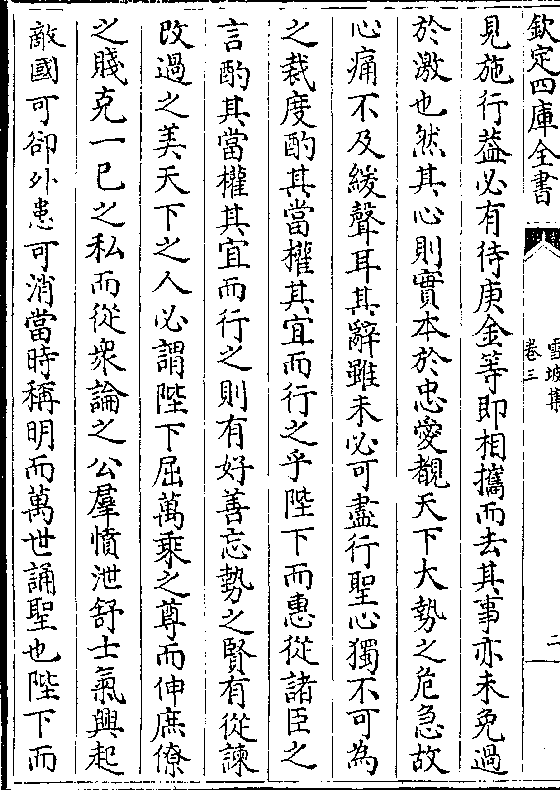 欽定四庫全書
雪坡集
卷三
二
見施行葢必有待庚金等即相攜而去其事亦未免過
於激也然其心則實本於忠愛覩天下大勢之危急故
心痛不及緩聲耳其辭雖未必可盡行聖心獨不可為
之裁度酌其當權其宜而行之乎陛下而惠從諸臣之
言酌其當權其宜而行之則有好善忘勢之賢有從諫
改過之美天下之人必謂陛下屈萬乗之尊而伸庶僚
之賤克一已之私而從衆論之公羣憤泄舒士氣興起
敵國可卻外患可消當時稱明而萬世誦聖也陛下而